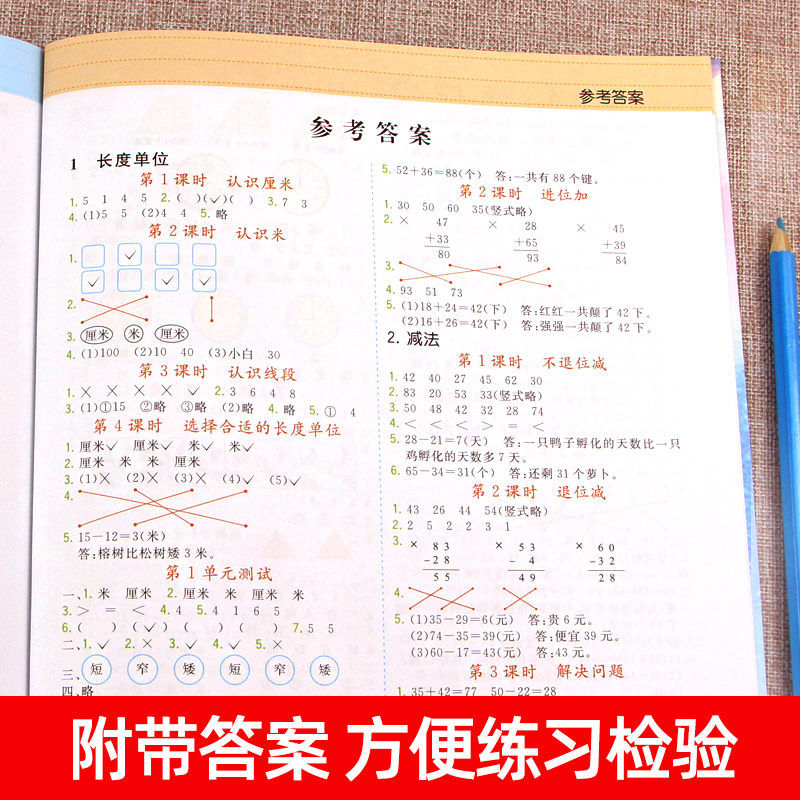 参考答案
参考答案
1 长度单位
第1课时 认识厘米
1. 5 1 4 5 2. ( )(✓)( ) 3. 7 3
4. (1)5 5 (2)4 4 5. 略
第2课时 认识米
1. ✓
✓ ✓ ✓
2.
3. 厘米 米 厘米
4. (1)100 (2)10 40 (3)小白 30
第3课时 认识线段
1. × × × × ✓ 2. 3 6 4 8
3. (1)①15 ②略 ③略 (2)略 4. 略 5. ① 4
第4课时 选择合适的长度单位
1. 厘米✓ 厘米✓ 米✓ 米✓
2. 厘米 米 米 厘米
3. (1)× (2)× (3)× (4)✓ (5)✓
4.
5. 15－12＝3(米)
答:榕树比松树矮3米。
第1单元测试
一、1. 米 厘米 2. 厘米 米 厘米 米
3. ＞ ＝ ＜ 4. 4 5. 4 1 6 5
6. ( ) (✓) ( ) ( ) 7. 5 5
二、1. ✓ 2. × 3. ✓ 4. ✓ 5. ×
三、短 窄 矮 短 窄 矮
四、略
5. 52＋36＝88(个) 答:一共有88个键。
第2课时 进位加
1. 30 50 60 35(竖式略)
2. × 47 × 28 × 45
+33 +65 +39
80 93 84
3.
4. 93 51 73
5. (1)18＋24＝42(下) 答:红红一共颠了42下。
(2)16＋26＝42(下) 答:强强一共颠了42下。
2. 减法
第1课时 不退位减
1. 42 40 27 45 62 30
2. 83 20 53 33(竖式略)
3. 50 48 42 32 28 74
4. ＜ ＜ ＞ ＞ ＝ ＜
5. 28－21＝7(天) 答:一只鸭子孵化的天数比一只
鸡孵化的天数多7天。
6. 65－34＝31(个) 答:还剩31个萝卜。
第2课时 退位减
1. 43 26 44 54(竖式略)
2. 2 5 2 2 3 1
3. × 83 × 53 × 60
-28 -4 -32
55 49 28
4.
5. (1)35－29＝6(元) 答:贵6元。
(2)74－35＝39(元) 答:便宜39元。
(3)60－17＝43(元) 答:43元。
第3课时 解决问题
1. 35＋42＝77 50－22＝28
附带答案 方便练习检验